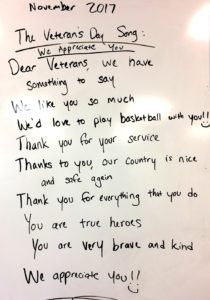 November 2017
The Veteran's Day Song:
We Appreciate You
Dear Veterans, we have
something to say
We like you so much
We'd love to play basketball with you!!
Thank you for your service
Thanks to you, our country is nice
and safe again
Thank you for everything that you do
You are true heroes
You are very brave and kind
We appreciate you!!